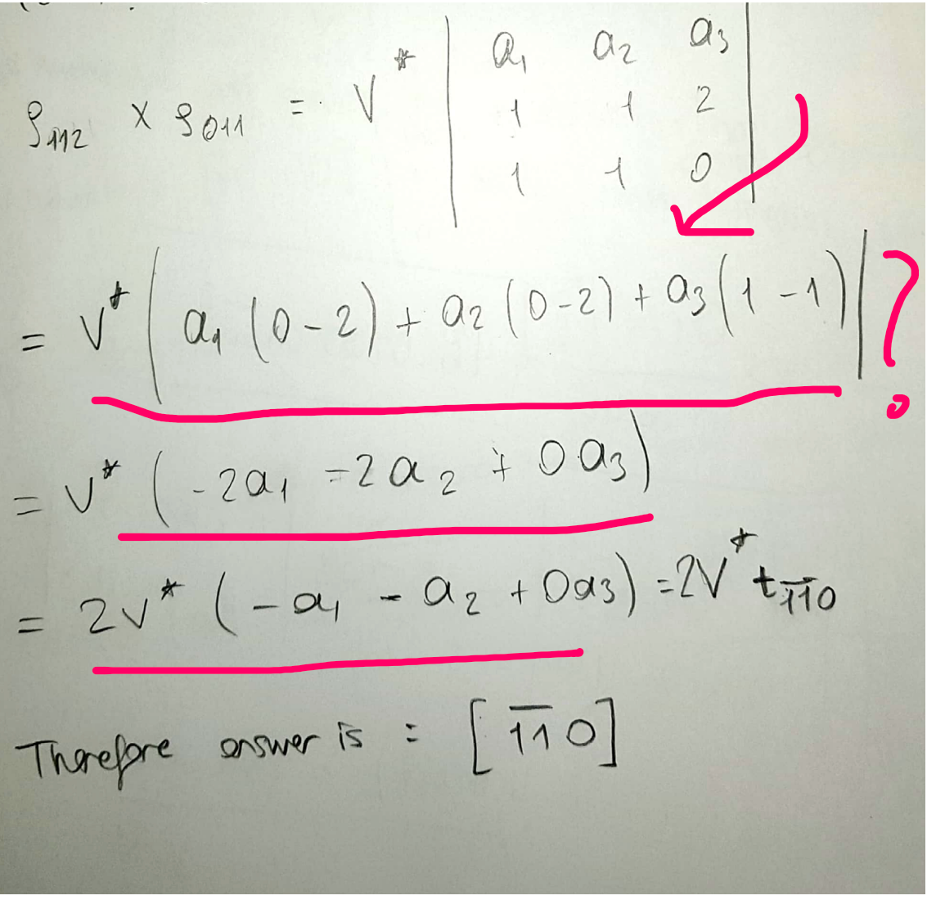 g₁₁₂ × g₀₁₁ = V* | a₁ a₂ a₃ |
| 1 1 2 |
| 1 1 0 |
= V* | a₁ (0-2) + a₂ (0-2) + a₃ (1-1) | ?
= V* ( -2a₁ -2a₂ + 0a₃ )
= 2V* ( -a₁ - a₂ + 0a₃ ) = 2V* t_1̅1̅0
Therefore answer is : [1̅1̅0]